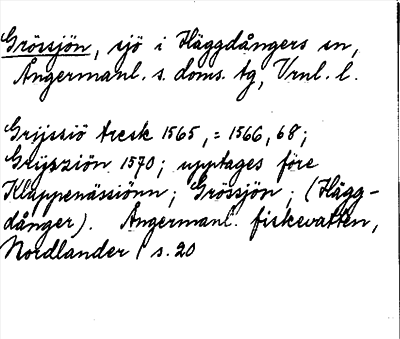 Grössjön, sjö i Häggdångers sn,
Ångermanl. s. doms. tg, Vrnl. l.
Grijssiö tresk 1565, = 1566, 68;
Grijszіön 1570; upptages före
Klappenässiönn; Grössjön; (Hägg-
dånger). Ångermanl. fiskevatten,
Nordlander / s. 20